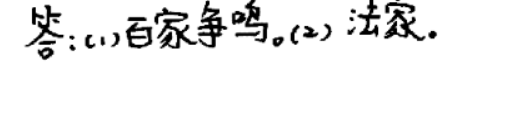 答:(1)百家争鸣。(2)法家.